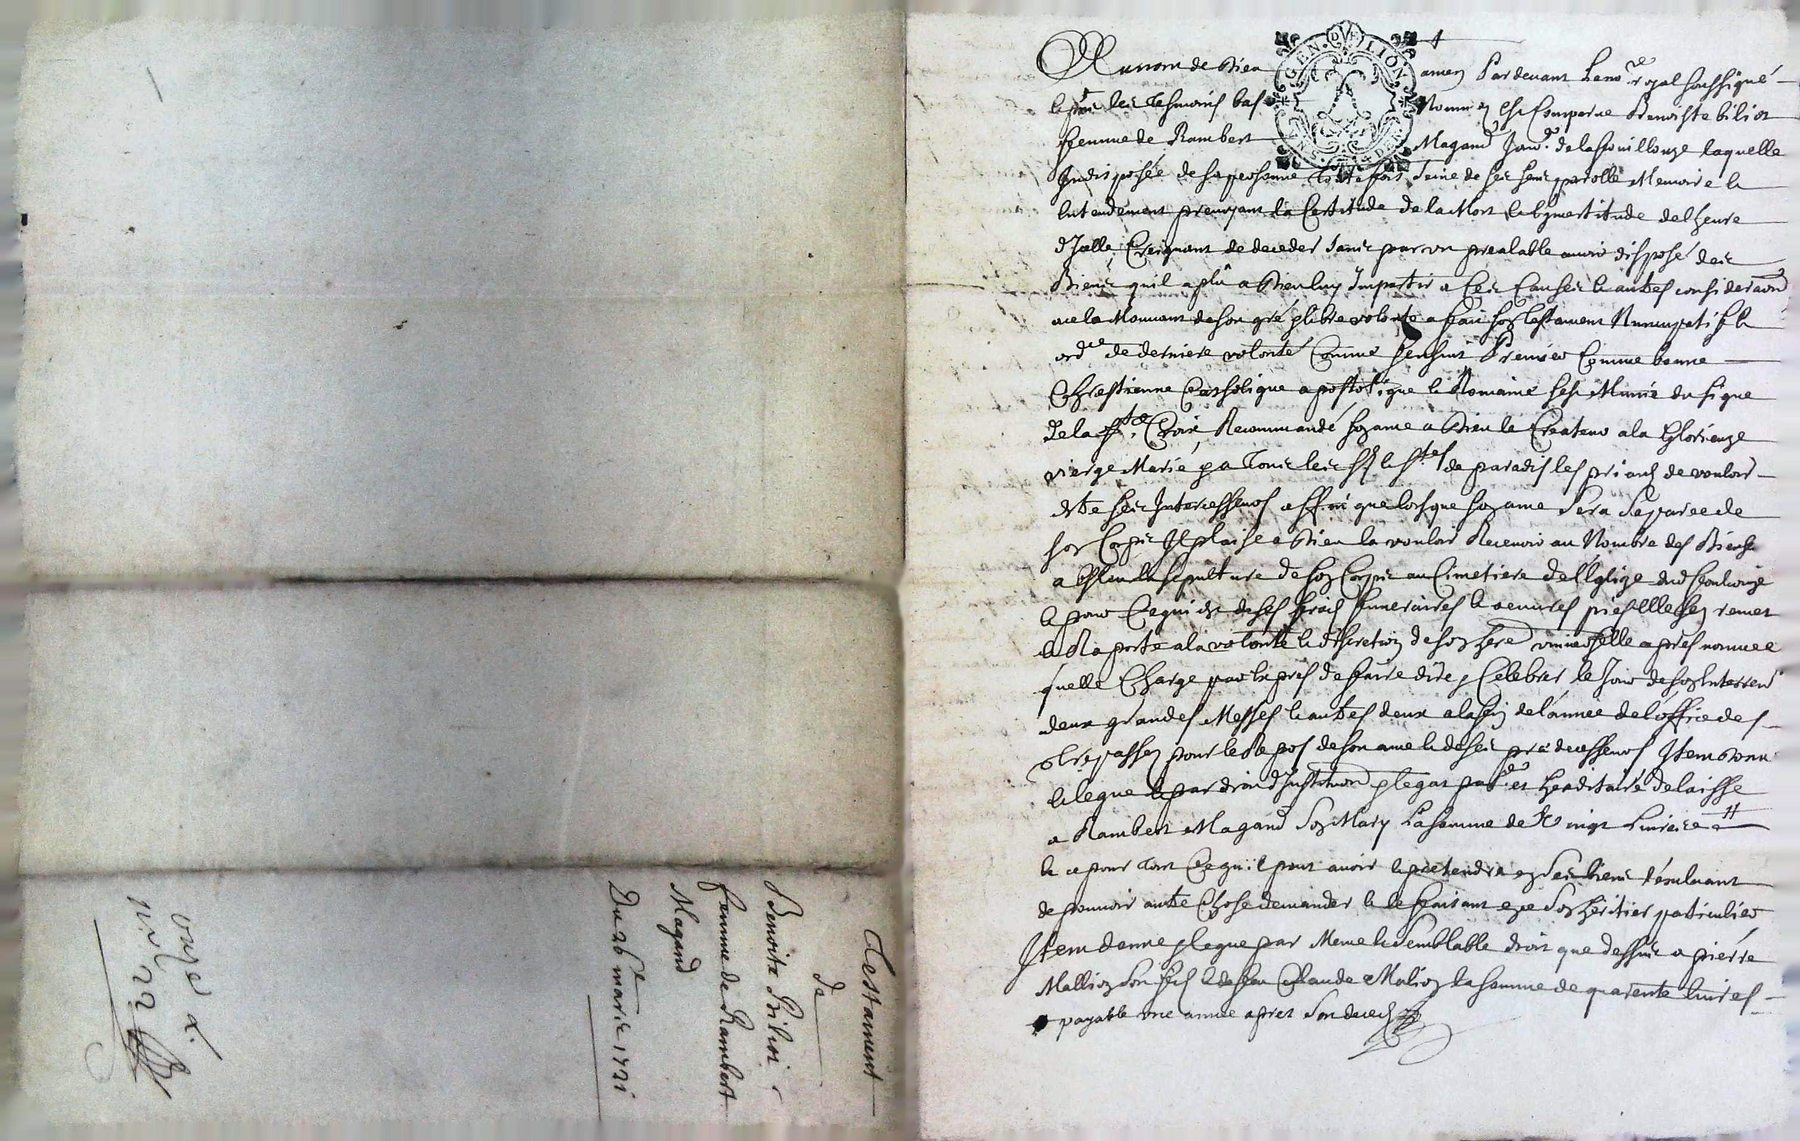 Testament
de
Benoite Bilioz
femme de Rambert
Magand
Du 26 mars 1721
GEN. DE LION
Au nom de Dieu amen Pardevant Le no.re royal soussigné
les tesmoins bas Nommez est Comparue Benoiste bilioz
femme de Rambert Magand Jour. de la fouillouze laquelle
Indisposée de sa personne toutefois saine de ses sens parolle Memoire &
Entendement prevoyant la Certitude de la Mort & l'Incertitude de l'heure
d'Icelle, Creignant de deceder sans par un prealable avoir disposé des
Biens qu'il a plû a Dieu luy Impartir a Ces Causes & autres considera.ons
a ce la Mouvant de son gré & libre volonté a fait son testament Nuncupatif &
ord.ce de derniere volonté Comme s'ensuit Premier Comme bonne
Chrestienne Catholique apostolique & Romaine s'est Munie du signe
de la s.te Croix, Recommandé son ame a Dieu le Createur a la Glorieuze
vierge Marie, & a tous les s.ts & s.tes de paradis les priant de vouloir
estre ses Intercesseurs affin que lorsque son ame sera separee de
son Corps Il plaise a Dieu la vouloir Recevoir au Nombre des Bienh.
a Esleu la sepulture de son Corps au Cimetiere de l'Eglize dud fouillouze
& pour Ce qui est de ses frais funeraires & oeuvres pies Elle s'en remet
& Raporte a la volonté & discretion de son here universelle apres nommee
quelle Charge par Expres de faire dire & Celebrer le Jour de son Enterrem
deux grandes Messes & autres deux a la fin de l'année de l'office des
trepassez pour le Repos de son ame & de ses predecesseurs Item donne
& legue & par droit d'Institution & legat part.er et hereditaire delaisse
a Rambert Magand son Mary La somme de vingt Livres
& ce pour tout Ce qu'il peut avoir & pretendre en ses biens
de pouvoir autre Chose demander & le faisant en ce son heritier particulier
Item donne & legue par Meme & semblable droit que dessus a pierre
Mallioz son fils & de feu Claude Malioz la somme de quarente livres
payable une année apres son decedz